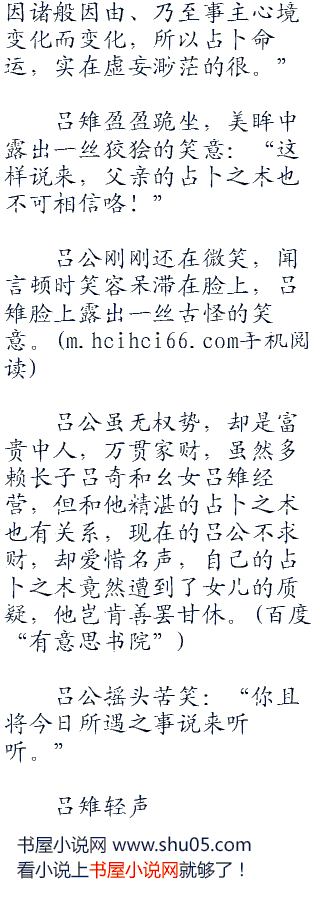 因诸般因由、乃至事主心境
变化而变化，所以占卜命
运，实在虚妄渺茫的很。”
吕雉盈盈跪坐，美眸中
露出一丝狡狯的笑意：“这
样说来，父亲的占卜之术也
不可相信咯！”
吕公刚刚还在微笑，闻
言顿时笑容呆滞在脸上，吕
雉脸上露出一丝古怪的笑
意。(m.hcihci66.com手机阅
读)
吕公虽无权势，却是富
贵中人，万贯家财，虽然多
赖长子吕奇和幺女吕雉经
营，但和他精湛的占卜之术
也有关系，现在的吕公不求
财，却爱惜名声，自己的占
卜之术竟然遭到了女儿的质
疑，他岂肯善罢甘休。(百度
“有意思书院”)
吕公摇头苦笑：“你且
将今日所遇之事说来听
听。”
吕雉轻声
书屋小说网 www.shu05.com
看小说上书屋小说网就够了！